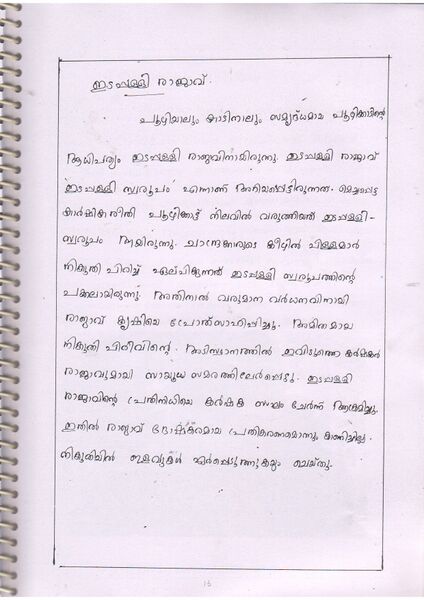 ഇടപ്പള്ളി രാജാവ്.
പൂഴിയാലും കാടിനാലും സമൃദ്ധമായ പൂഴിക്കാടിന്റെ
ആധിപത്യം ഇടപ്പള്ളി രാജാവിനായിരുന്നു. ഇടപ്പള്ളി രാജാവ്
ഇടപ്പള്ളി സ്വരൂപം എന്നാണ് അറിയപ്പെട്ടിരുന്നത. മെച്ചപ്പെട്ട
കാർഷികരീതി പൂഴിക്കാട്ട് നിലവിൽ വരുത്തിയത് ഇടപ്പള്ളി-
സ്വരൂപം ആയിരുന്നു. ചാന്നേക്കരുടെ കീഴിൽ പിള്ളമാർ
നികുതി പിരിച്ച് ഏല്പിക്കുന്നത് ഇടപ്പള്ളി സ്വരൂപത്തിന്റെ
പക്കലായിരുന്നു. അതിനാൽ വരുമാന വർധനവിനായി
രാജാവ് കൃഷിയെ പ്രോത്സാഹിപ്പിച്ചു. അമിതമായ
നികുതി പിരിവിന്റെ. അടിസ്ഥാനത്തിൽ ഇവിടുത്തെ കർഷകർ
രാജാവുമായി സായുധ സമരത്തിലേർപ്പെട്ടു. ഇടപ്പള്ളി
രാജാവിന്റെ പ്രതിനിധിയെ കർഷക സംഘം ചേർന്ന് ആക്രമിച്ചു.
ഇതിൽ രാജാവ് ദ്രോഹകരമായ പ്രതികരണമൊന്നും കാണിച്ചില്ല.
നികുതിയിൽ ഇളവുകൾ ഏർപ്പെടുത്തുകയും ചെയ്തു.
13